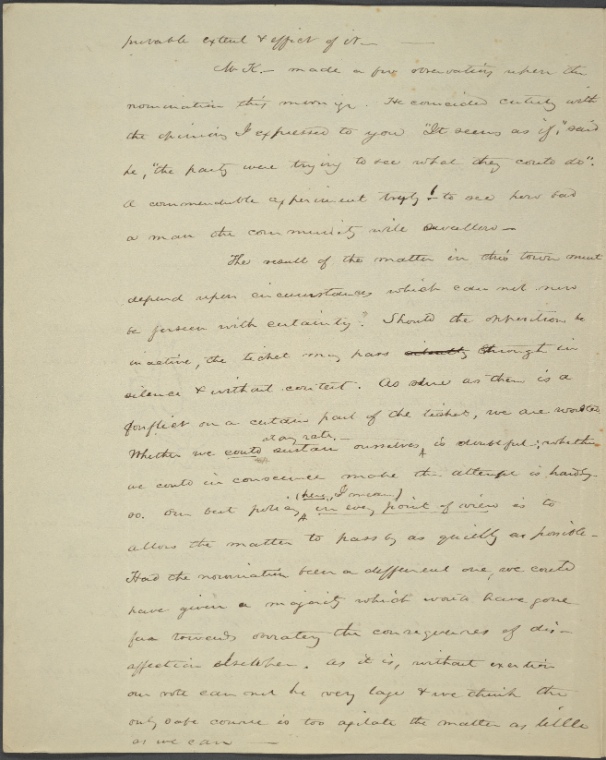 probable extent & effect of it —
Mr K. — made a few observations upon the
nomination this morning. He coincided entirely with
the opinions I expressed to you "It seems as if," said
he, "the party were trying to see what they could do".
A commendable experiment truly! to see how bad
a man the community will swallow —
The result of the matter in this town must
depend upon circumstances which can not now
be forseen with certainty? Should the opposition be
inactive, the ticket may pass silently through in
silence & without contest. As sure as there is a
conflict on a certain part of the ticket, we are worsted
at any rate. —
Whether we could sustain ourselves is doubtful; whether
we could in conscience make the attempt is hardly
(here, I mean)
so. Our best policy in every point of view is to
allow the matter to pass by as quietly as possible —
Had the nomination been a different one, we could
have given a majority which would have gone
far towards the consequences of dis-
affection elsewhere. As it is, without exertion
our vote can not be very large & we think the
only safe course is too agitate the matter as little
as we can —